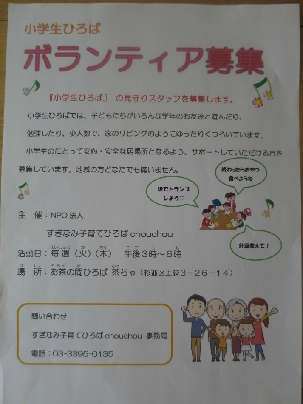 小学生ひろば
ボランティア募集
『小学生ひろば』 の見守りスタッフを募集します。
小学生ひろばでは、子どもたちがいろんな学年のお友達と遊んだり、
宿題したり、少人数で、家のリビングのようでゆったりくつろいでいます。
小学生のだって安心・安全な居場所となるよう、サポートしていただける方を
募集しています。地域の方どなたでも構いません。
終わったらおやつ
食べような
後でトランプ
しようよ
計算教えて！
主 催：NPO法人
すぎなみ子育てひろば chouchou
活動日：毎週（火）（木） 午後3時～6時
場 所：お茶の間ひろば 茶らり（杉並区上荻3－26－14）
問い合わせ
すぎなみ子育てひろば chouchou 事務局
電話：03-3395-0135